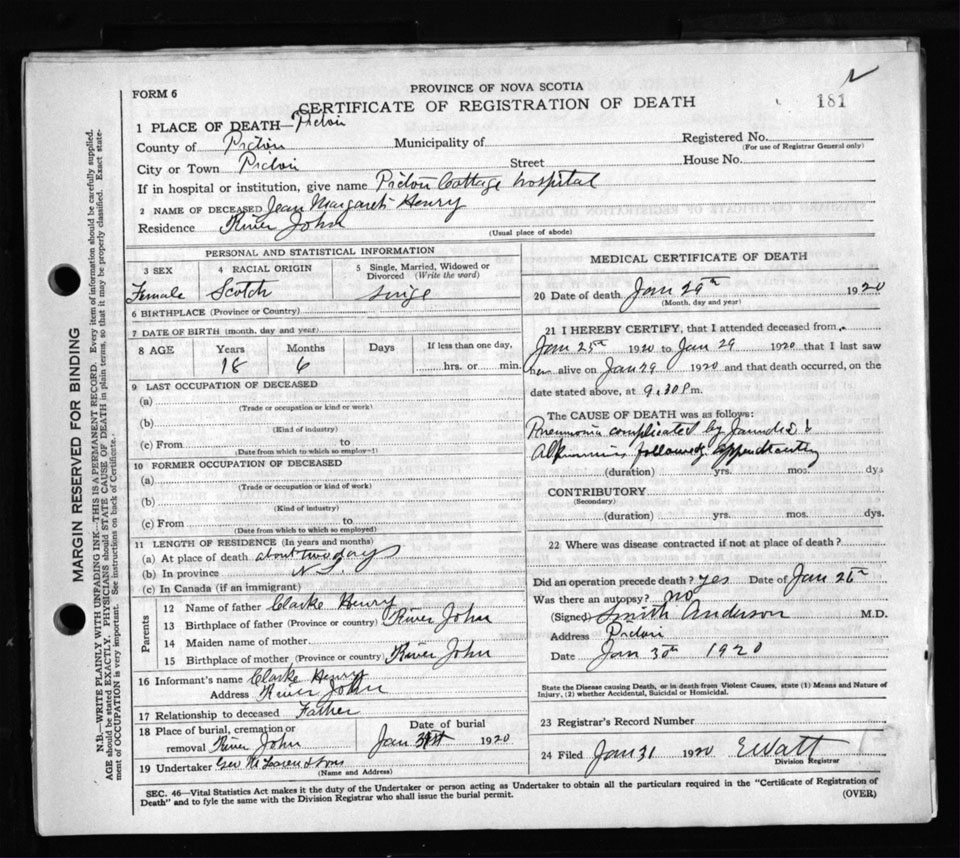 FORM 6
PROVINCE OF NOVA SCOTIA
CERTIFICATE OF REGISTRATION OF DEATH
181
1 PLACE OF DEATH— Pictou
County of Pictou Municipality of Registered No.
(For use of Registrar General only)
City or Town Pictou Street House No.
If in hospital or institution, give name Pictou Cottage hospital
2 NAME OF DECEASED Jean Margaret Henry
Residence River John
(Usual place of abode)
PERSONAL AND STATISTICAL INFORMATION
3 SEX 4 RACIAL ORIGIN 5 Single, Married, Widowed or Divorced (Write the word)
Female Scotch
6 BIRTHPLACE (Province or Country)
7 DATE OF BIRTH (month, day and year)
8 AGE Years Months Days If less than one day,
18 6 hrs. or min.
9 LAST OCCUPATION OF DECEASED
(a)
(Trade or occupation or kind or work)
(b)
(Kind of industry)
(c) From to
(Date from which to which so employ—)
10 FORMER OCCUPATION OF DECEASED
(a)
(Trade or occupation or kind of work)
(b)
(Kind of industry)
(c) From to
(Date from which to which so employed)
11 LENGTH OF RESIDENCE (In years and months)
(a) At place of death about two days
(b) In province
(c) In Canada (if an immigrant)
Parents
12 Name of father Clarke Henry
13 Birthplace of father (Province or country) River John
14 Maiden name of mother
15 Birthplace of mother (Province or country) River John
16 Informant's name Clarke Henry
Address River John
17 Relationship to deceased Father
18 Place of burial, cremation or removal River John
Date of burial Jan 31st 1920
19 Undertaker Geo McLaren & Sons
(Name and Address)
MEDICAL CERTIFICATE OF DEATH
20 Date of death Jan 29th 1920
(Month, day and year)
21 I HEREBY CERTIFY, that I attended deceased from
Jan 25th 1920 to Jan 29 1920 that I last saw
her alive on Jan 29 1920 and that death occurred, on the
date stated above, at 9.30 P m.
The CAUSE OF DEATH was as follows:
Pneumonia complicated by Jaundice &
followed appendectomy
(duration) yrs. mos. dys
CONTRIBUTORY
(Secondary)
(duration) yrs. mos. dys.
22 Where was disease contracted if not at place of death?
Did an operation precede death? yes Date of Jan 26th
Was there an autopsy? no
(Signed) Smith Anderson M.D.
Address Pictou
Date Jan 30th 1920
State the Disease causing Death, or in death from Violent Causes, state (1) Means and Nature of
Injury, (2) whether Accidental, Suicidal or Homicidal.
23 Registrar's Record Number
24 Filed Jan 31 1920 E Watt
Division Registrar
SEC. 46—Vital Statistics Act makes it the duty of the Undertaker or person acting as Undertaker to obtain all the particulars required in the "Certificate of Registration of
Death" and to fyle the same with the Division Registrar who shall issue the burial permit.
(OVER)
MARGIN RESERVED FOR BINDING
N.B.—WRITE PLAINLY WITH UNFADING INK—THIS IS A PERMANENT RECORD. Every item of information should be carefully supplied.
AGE should be stated EXACTLY. PHYSICIANS should STATE CAUSE OF DEATH in plain terms, so that it may be properly classified. Exact state-
ment of OCCUPATION is very important. See instructions on back of Certificate.